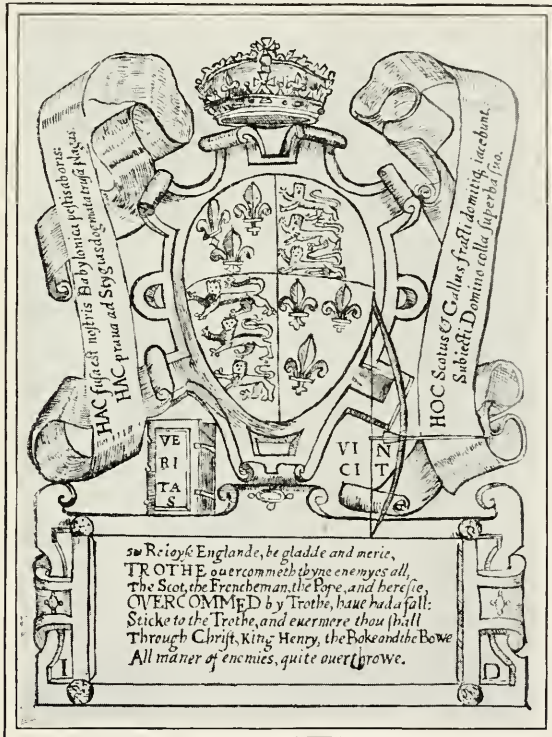 HAC fusa est nostris Babylonica pestis ab oris:
HAC praua ad Stygias dogmata trusa plagas.
HOC Scotus & Gallus fracti domitiq; iacebunt.
Subiecti Domino colla superba suo.
VE
RI
TA
S
VI
CI
N
T
Reioyse Englande, be gladde and merie,
TROTHE ouercommeth thyne enemyes all,
The Scot, the Frencheman, the Pope, and heresie,
OVERCOMMED by Trothe, haue had a fall:
Sticke to the Trothe, and euermere thou shall
Through Christ, King Henry, the Boke and the Bowe
All maner of enemies, quite ouerthrowe.
I
D